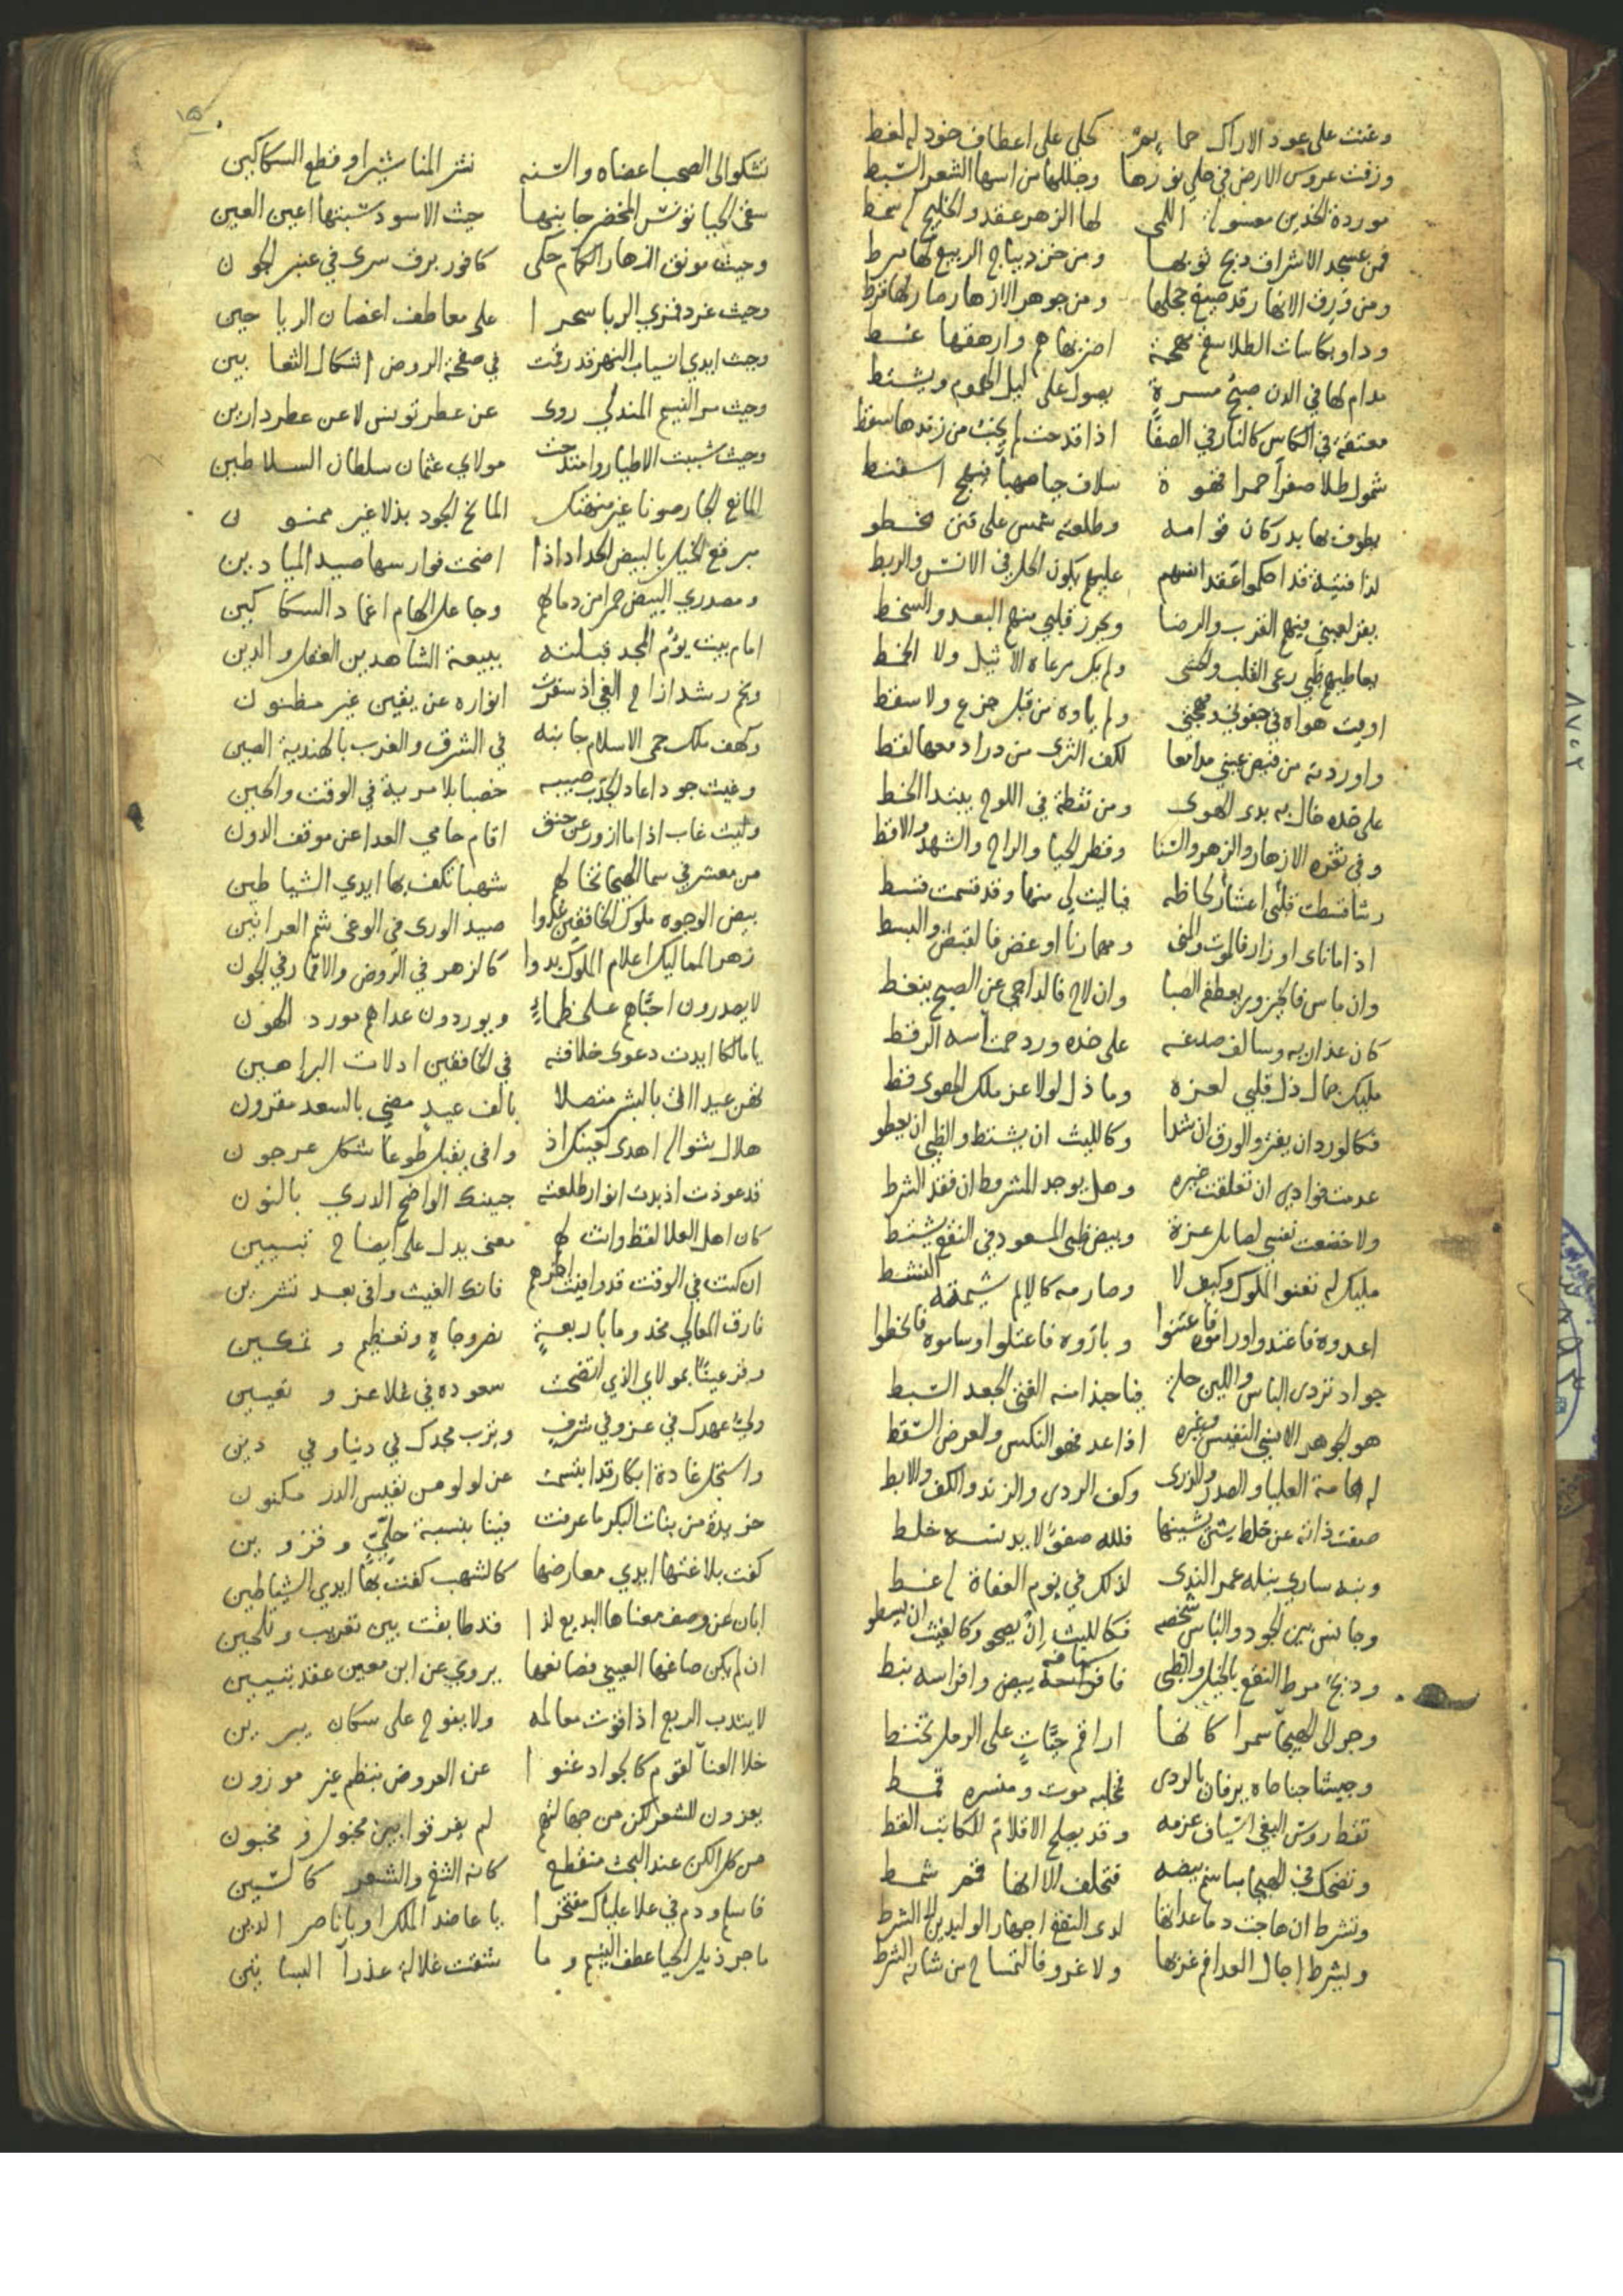 وغنت على عود الاراك حمايم كحلى على اعطاف خود له لغط
وزفت عروس الارض في حلي نورها وجللها من اسها الشعر السبط
موردة الخدين معسولة اللمى لها الزهر عقد والخليج لها سمط
فمن عسجد الاشراق دبج ثوبها ومن خز ديباج الربيع لها مرط
ومن ورق الانهار قد صيغ حجلها ومن جوهر الازهار صار لها قرط
وداو بكاسات الطلا سقم مهجة اضر بها هم وارهقها غبط
مدام لها في الدن صبح مسرة يصول على ليل الهموم ويشتط
معتقة في الكاس كالنار في الصفا اذا قدحت لم يخب من زندها سقط
شمول طلا صفرا حمرا قهوة سلاف حيا صهبا اسفنط
يطوف بها بدر كان قوامه وطلعته شمس على غصن يخطو
لذا فتية قد احكموا عقد انسهم عليهم يكون الحل في الانس والربط
يعز لعيني فيهم القرب والرضا ويحرز قلبي منهم البعد والسخط
يعاطيهم ظبي رعى القلب والحشى ولم يك مرعاه الاثيل ولا الخمط
اويت هواه في جفوني ومهجتي ولم ياوه من قبل جزع ولا سقط
واوردته من فيض عيني مدامعا لكف الثرى من در ادمعها لقط
على خده خال به بدى الهوى ومن نقطة في اللوح يبتدا الخط
وفي ثغره الازهار والزهر والسنا وقطر الحيا والراح والشهد والاقط
رشا قسطت قلبي اعشار لحاظه فيا ليت لي منها وقد قسمت قسط
اذا ما ناى او زار فالموت والمنى ومهما رنا او غض فالقبض والبسط
وان ماس فالخيزور يعطفه الصبا وان لاح فالداجي عن الصبح ينغط
كان عذاريه وسالف صدغه على خده ورد حمت اسه الرقط
مليك جمال ذل قلبي لعزه وما ذل لولا عز ملك الهوى قط
فكالورد ان يفتر والورق ان شدا وكالليث ان يشتط والظبي ان يعطو
عدمت فوادي ان تعلقت غيره وهل يوجد المشروط ان فقد الشرط
ولا خضعت نفسي لصايل عزة وبيض ظبى المسعود في النقع يشتط
مليك له تعنو الملوك وكيف لا وصارمه كالايم شيمته النشط
اعدوه فاعتدوا وراموه فاعتنوا وبازوه فاعتلوا وساموه فانحطوا
جواد تردى الباس واللين حلة فيا حبذا منه الفتى الجعد السبط
هو الجوهر الاسنى النفيس وغيره اذا عد فهو النكس والعرض السقط
له الهامة العليا والصدر والذرى وكف الردى والزند والكف والابط
صفت ذاته عن خلط شين يشينها فلله صفو لا يدنسه خلط
ونبه ساري نيله عمر الندى لذلك في يوم العفاة له غط
وجانس بين الجود والباس شخصه فكالليث ان يصحو وكالغيث ان يسطو
ودبج مرط النقع بالخيل والظبى بيض وافراسه نبط
وجر الى الهيجا سمرا كانها اراقم حيات على الرمل تختط
وجيشا جناحاه يرفان بالردى مخلبه موت ومنسره قمط
تقط روس البغي اسياف عزمه وقد يصلح الاقلام للكاتب القط
وتضحك في الهيجا مباسم بيضه فتحلف الا انها فخر شمط
وتشرط ان هاجت دما عداتها لدى النقع اجهار الوليدين الشرط
ويشرط اجال العدا في غزها ولا غرو فالتمساح من شانه الشرط
١٥
تشكو الى الصحب اعضاه والسنه نشر المناشير او قطع السكاكين
سقى الحيا تونس الخضر جانبها حيث الاسود سبتها اعين العين
وحيث مونق ازهار الكمام حكى كافور برق سرى في عنبر الجون
وحيث غرد قمري الربا سحرا على معاطف اغصان الرياحين
وحيث ايدي انسياب النهر قد رقت في صفحة الروض اشكال الثعابين
وحيث سر النسيم المندلي روى عن عطر تونس لا عن عطر دارين
وحيث شببت الاطيار وامتدحت مولاي عثمان سلطان السلاطين
المانع الجار صونا غير منهتك المانح الجود بذلا غير ممنون
مبرقع الخيل بالبيض الحداد اذا اضحت فوارسها صيد الميادين
ومصدري البيض حمرا من دمائهم وجاعل الهام اغماد السكاكين
امام بيت يؤم المجد قبلته ببيعة الشاهدين العقل والدين
ونجم رشد ازاح الغي اذ سفرت انواره عن يقين غير مظنون
وكهف ملك حمى الاسلام جانبه في الشرق والغرب بالهندية الصين
وغيث جود اعاد الجدب صيبه خصبا بلا مرية في الوقت والحين
وليث غاب اذا ما ازور عن حنق اقام حامي العدا عن موقف الدون
من معشر في سما الهيجا تخالهم شهبا تكف بها ايدي الشياطين
بيض الوجوه ملوك الخافقين غدوا صيد الورى في الوغى شم العرانين
زهر المماليك اعلام الملوك بدوا كالزهر في الروض والاقمار في الجون
لا يصدرون احباهم على ظماء ويوردون عداهم مورد الهون
يا مالكا ايدت دعوى خلافته في الخافقين ادلات البراهين
تهن عيدا اتى بالبشر متصلا بالف عيد مضى بالسعد مقرون
هلال شوال اهدى لعينك اذ وافى يقبل طوعا شكل عرجون
قد عوذت اذ بدت انوار طلعته جبينك الواضح الدري بالنون
كان اهل العلا لفظ وانت لهم معنى يدل على ايضاح تبيين
ان كنت في الوقت قد وافيت اخرهم فانك الغيث وافى بعد تشرين
فارق المعالي مخدوما باربعة نصر وجاه وتعظيم وتمكين
وقر عينا بمولاي الذي اتضحت سعوده في علا عز وتعيين
ولي عهدك في عز وفي شرف وترب مجدك في دنيا وفي دين
واستجل غادة ابكار قد ابتسمت عن لولو من نفيس الدر مكنون
خريدة من بنات البكر ما عرفت فينا بنسبة حلي وقزوين
كفت بلاغتها ايدي معارضها كالشهب كفت بها ايدي الشياطين
ابان عن وصف معناها البديع لذا قد طابقت بين تقريب وتلحين
ان لم يكن صاغها العبسي فصانعها يروي عن ابن معين عقد تبيين
لا يندب الربع اذ اقوت معالمه ولا ينوح على سكان يبرين
خلا العنا لقوم كالجواد غنوا عن العروض بنظم غير موزون
يعزون للشعر لكن من جهالتهم لم يفرقوا بين مخبول ومخبون
من كل الكن عند البحث منقطع كانه الثغ والشعر كالسين
فاسلم ودم في علا علياك مفتخرا يا عاضد الملك او يا ناصر الدين
ما جر ذيل الحيا عطف النسيم وما شققت غلالة عذرا البساتين